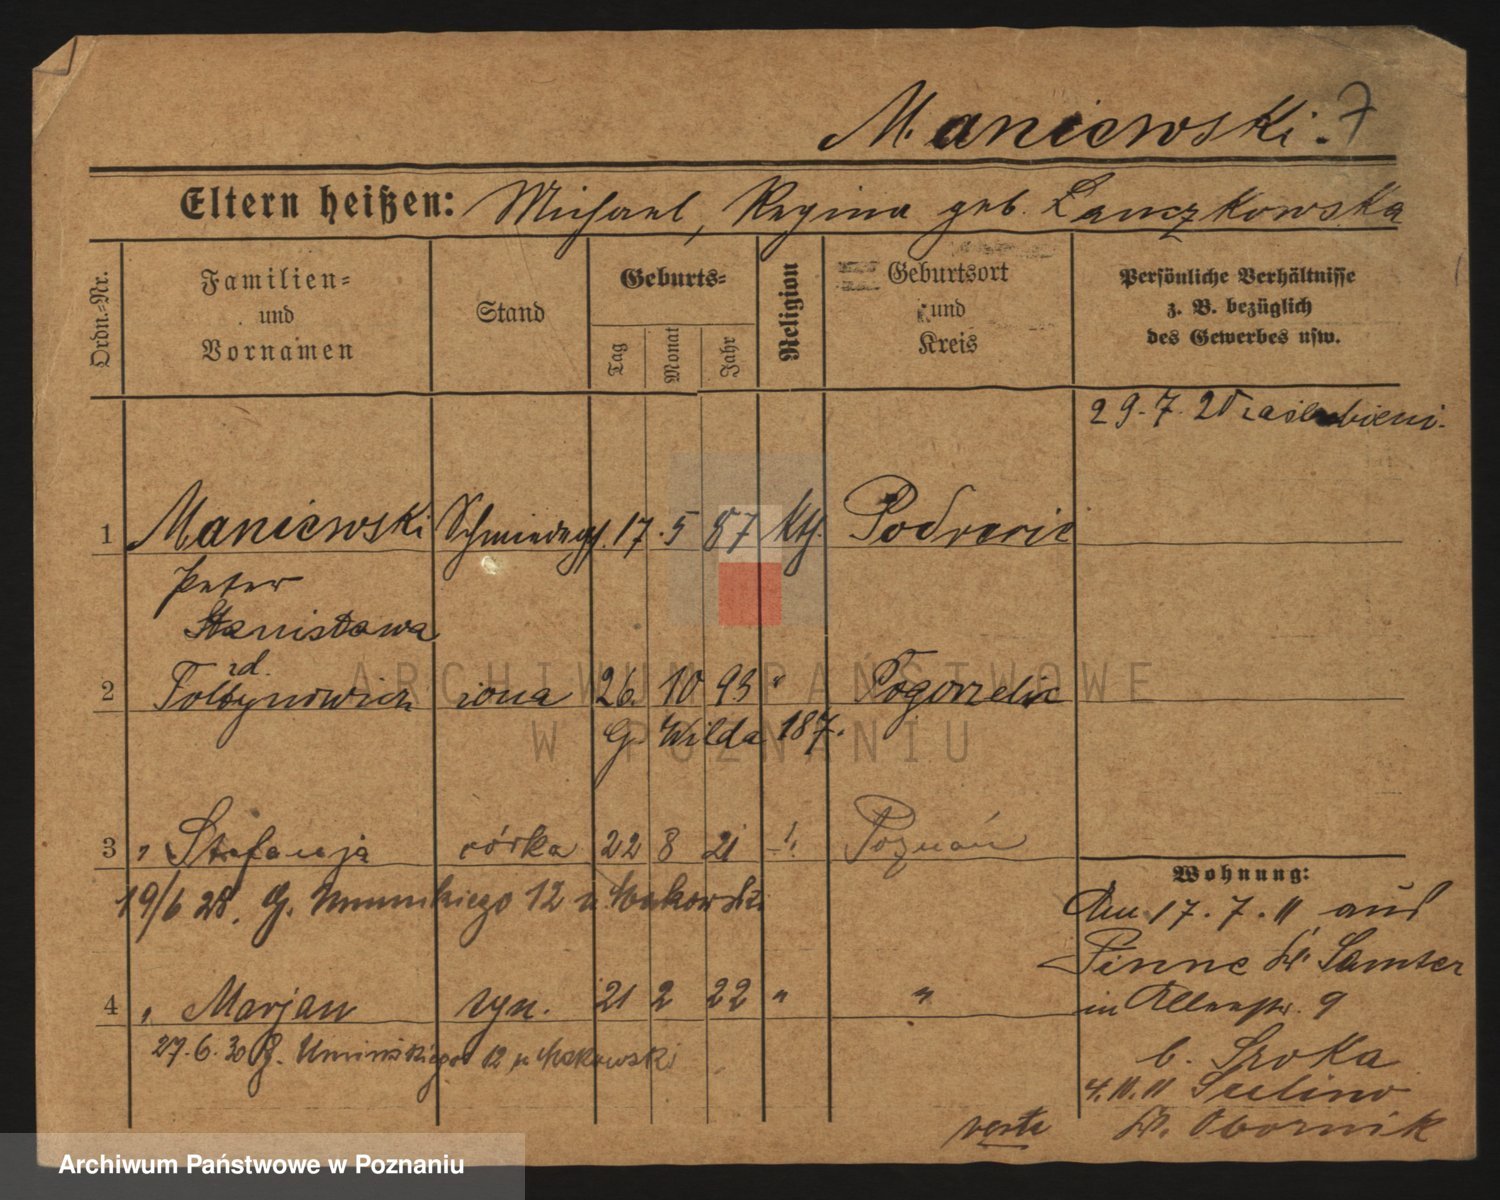 Maniewski. 7
Eltern heißen: Michael, Regina geb. Lanczkowska
Ordn.-Nr.
Familien- und Vornamen
Stand
Geburts-
Tag
Monat
Jahr
Religion
Geburtsort und Kreis
Persönliche Verhältnisse z. B. bezüglich des Gewerbes usw.
29. 7. 20 zaślubieni.
1 Maniewski Schmiedeges. 17. 5 87 kth.
Peter
Stanisława
zd.
2 żona 26. 10 93 " Pogorzelic
G. Wilda 187.
3 " Stefanja córka 22 8 21 Poznań
19/6 28. G. Umińskiego 12 u Makowski
4 " Marjan syn. 21 2 22 " "
27.6.30 G. Umińskiego 12 u Makowski
Wohnung:
Am 17. 7. 11 aus
Pinne Kr. Samter
in Allerstr. 9
b. Sroka
4. 11. 11
Kr. Obornik
verte
ARCHIWUM PAŃSTWOWE
W POZNANIU
Archiwum Państwowe w Poznaniu